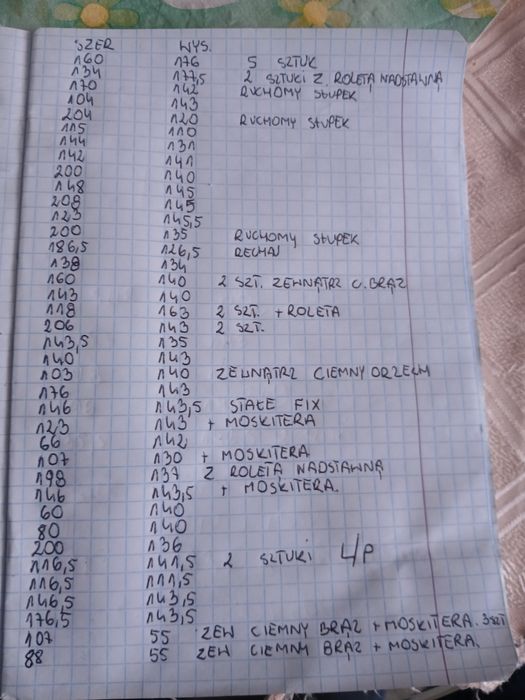 SZER WYS.
160 176 5 SZTUK
134 177,5 2 SZTUKI Z ROLETĄ NADSTAWNĄ
170 142 RUCHOMY SŁUPEK
104 143
204 120 RUCHOMY SŁUPEK
115 110
144 131
142 141
200 140
148 145
208 145
123 145,5
200 135 RUCHOMY SŁUPEK
186,5 126,5 RECHAU
138 134
160 140 2 SZT. ZEWNĄTRZ C. BRĄZ
143 140
118 163 2 SZT. + ROLETA
206 143 2 SZT.
143,5 135
140 143
103 140 ZEWNĄTRZ CIEMNY ORZECH
176 143
146 143,5 STAŁE FIX
123 143 + MOSKITERA
66 142
107 130 + MOSKITERA
198 137 Z ROLETĄ NADSTAWNĄ
146 143,5 + MOSKITERA.
60 140
80 140
200 136
116,5 141,5 2 SZTUKI L/P
116,5 111,5
146,5 143,5
176,5 143,5
107 55 ZEW CIEMNY BRĄZ + MOSKITERA. 3SZT
88 55 ZEW CIEMNY BRĄZ + MOSKITERA.